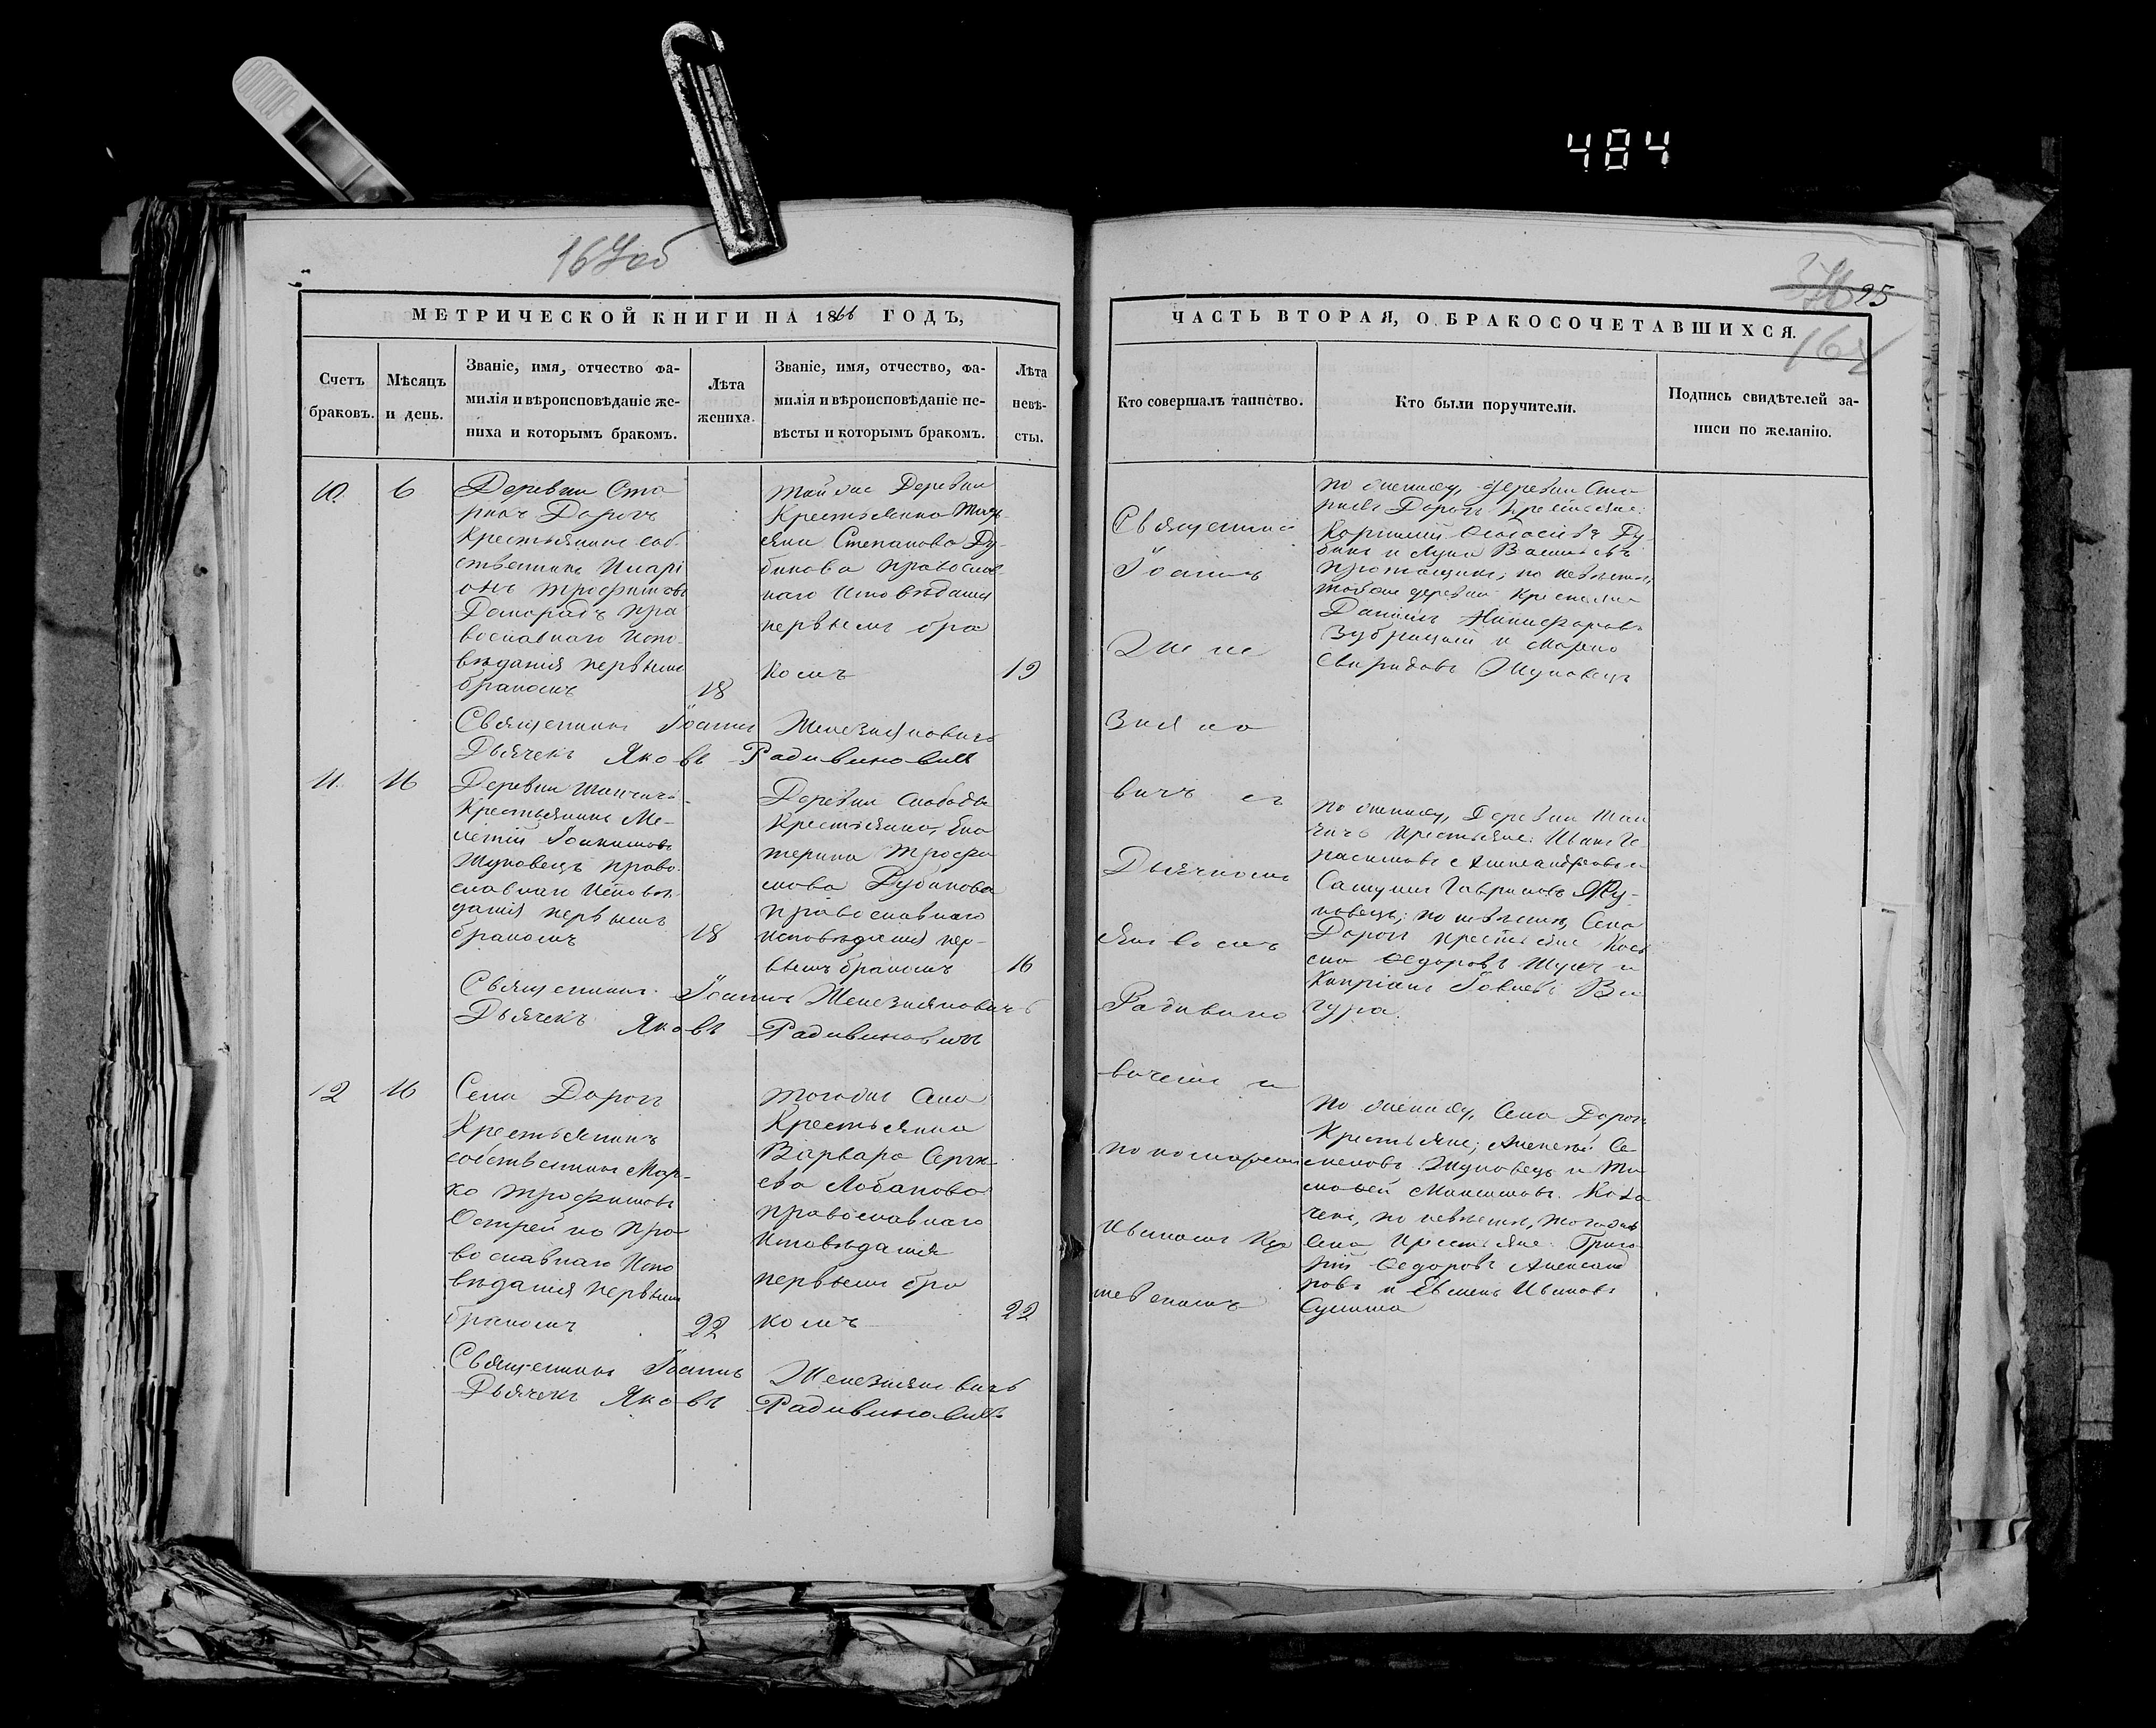 484
16
95
МЕТРИЧЕСКОЙ КНИГИ НА 1866 ГОДЪ,
Счетъ браковъ.
Мѣсяцъ и день.
Званіе, имя, отчество фа-
милія и вѣроисповѣданіе же-
ниха и которымъ бракомъ.
Лѣта
жениха.
Званіе, имя, отчество, фа-
милія и вѣроисповѣданіе не-
вѣсты и которымъ бракомъ.
Лѣта
невѣ-
сты.
10
6
Деревни Ста
рыхъ Дорогъ
Крестьянинъ соб
ственникъ Илари
онъ Трофимовъ
Доморадъ пра
вославнаго Испо
вѣданія первымъ
бракомъ
18
Тойже Деревни
Крестьянка Тать
яна Степанова Ду
бикова православ
наго Исповѣданія
первымъ бра
комъ
19
Священникъ Іоаннъ Железняковичъ
Дьячекъ Яковъ Радивиновичъ
11
16
Деревни
Крестьянинъ Ме-
летій Іоакимовъ
Жуковецъ право
славнаго Исповѣ
данія первымъ
бракомъ
18
Деревни Слободы
Крестьянка Ека
терина Трофи
мова Дубикова
православнаго
исповѣданія пер-
вымъ бракомъ
16
Священникъ Іоаннъ Железняковичъ
Дьячекъ Яковъ Радивиновичъ
12
16
Села Дорогъ
Крестьянинъ
собственникъ Мар-
ко Трофимовъ
Острейко Пра
вославнаго Испо
вѣданія первымъ
бракомъ
22
Тогоже Села
Крестьянка
Варвара Сергѣ
ева Лобанова
православнаго
Исповѣданія
первымъ бра
комъ
22
Священникъ Іоаннъ Железняковичъ
Дьячекъ Яковъ Радивиновичъ
ЧАСТЬ ВТОРАЯ, О БРАКОСОЧЕТАВШИХСЯ.
Кто совершалъ таинство.
Кто были поручители.
Подпись свидѣтелей за-
писи по желанію.
Священникъ
Іоаннъ
Желе
зняко
вичъ съ
Дьячкомъ
Яковомъ
Радивино
вичемъ и
пономаремъ
Иваномъ
по женихѣ, деревни Ста
рыхъ Дорогъ Крестьяне:
Ду
бикъ и Лука Васильевъ
по невѣстѣ,
тойже деревни Крестьяне
Даніилъ Никифоровъ
Зубрицкій и Марко
Свиридовъ Жуковецъ
по женихѣ, Деревни
Крестьяне: Иванъ Ге
расимовъ Александровъ и
Гавриловъ Жу-
ковецъ; по невѣстѣ, Села
Дорогъ крестьяне
Ѳедоровъ и
Кипріанъ
по женихѣ, Села Дорогъ
Крестьяне; Алексѣй Се
меновъ Жуковецъ и Ти
моѳей Максимовъ
по невѣстѣ, тогоже
Села Крестьяне Григо
рій Ѳедоровъ Александ
ровъ и Ивановъ